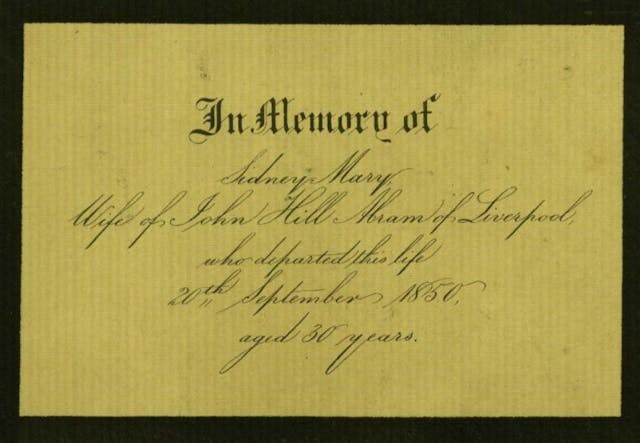 In Memory of
Sidney Mary,
Wife of John Hill Abram of Liverpool,
who departed this life
20th September 1850,
aged 30 years.